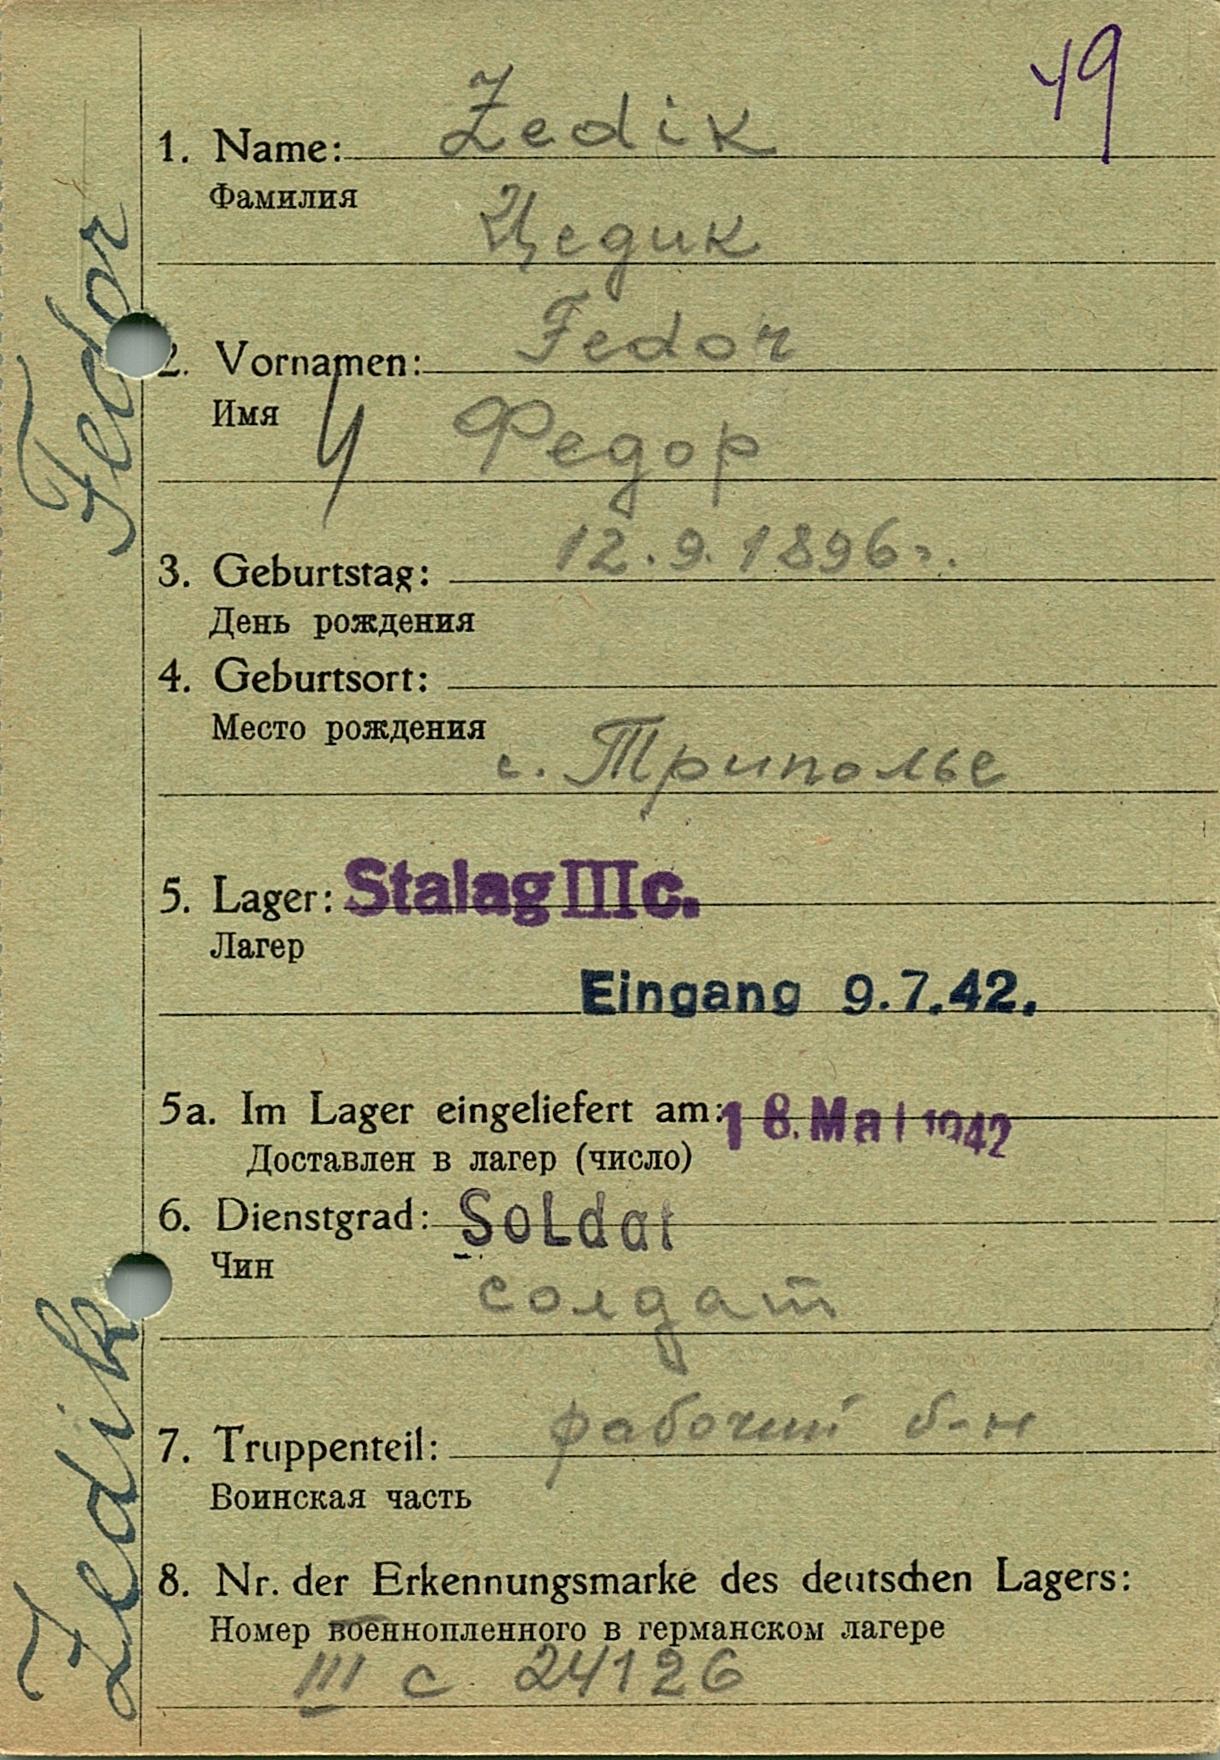 49
1. Name: Zedik
Фамилия
Цедик
2. Vornamen: Fedor
Имя Ч Федор
3. Geburtstag: 12.9.1896 г.
День рождения
4. Geburtsort:
Место рождения
с. Триполье
5. Lager: Stalag III c.
Лагер
Eingang 9.7.42.
5a. Im Lager eingeliefert am: 18. Mai 1942
Доставлен в лагер (число)
6. Dienstgrad: Soldat
Чин
солдат
7. Truppenteil: рабочий б-н
Воинская часть
8. Nr. der Erkennungsmarke des deutschen Lagers:
Номер военнопленного в германском лагере
III c 24126
Zedik Fedor